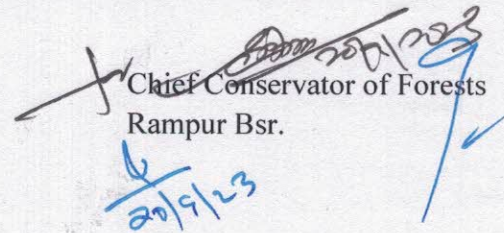 Chief Conservator of Forests
Rampur Bsr.
20/9/23